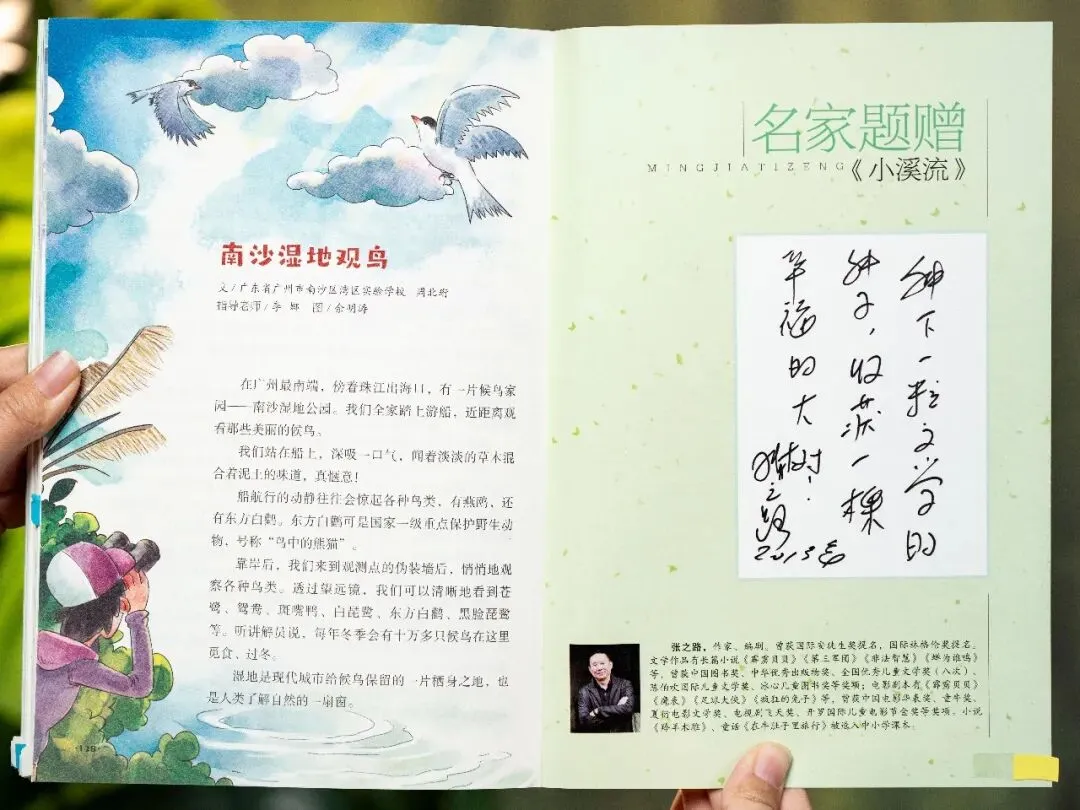 南沙湿地观鸟
文/广东省广州市南沙区湾区实验学校 周北珩
指导老师/李 娜 图/余明涛
在广州最南端，傍着珠江出海口，有一片候鸟家
园——南沙湿地公园。我们全家踏上游船，近距离观
看那些美丽的候鸟。
我们站在船上，深吸一口气，闻着淡淡的草木混
合着泥土的味道，真惬意！
船航行的动静往往会惊起各种鸟类，有燕鸥，还
有东方白鹳。东方白鹳可是国家一级重点保护野生动
物，号称“鸟中的熊猫”。
靠岸后，我们来到观测点的伪装墙后，悄悄地观
察各种鸟类。透过望远镜，我们可以清晰地看到苍
鹭、鸳鸯、斑嘴鸭、白琵鹭、东方白鹳、黑脸琵鹭
等。听讲解员说，每年冬季会有十万多只候鸟在这里
觅食、过冬。
湿地是现代城市给候鸟保留的一片栖身之地，也
是人类了解自然的一扇窗。
·128·
名家题赠
MINGJIATIZENG
《小溪流》
种下一粒文学的
种子，收获一棵
幸福的大
树！
张之路
2013
张之路，作家、编剧。曾获国际安徒生奖提名，国际林格伦奖提名。
文学作品有长篇小说《霹雳贝贝》《第三军团》《非法智慧》《蝉为谁鸣》
等，曾获中国图书奖、中华优秀出版物奖、全国优秀儿童文学奖（八次）、
陈伯吹国际儿童文学奖、冰心儿童图书奖等奖项；电影剧本有《霹雳贝贝》
《魔表》《足球大侠》《疯狂的兔子》等，曾获中国电影华表奖、童牛奖、
夏衍电影文学奖、电视剧飞天奖、开罗国际儿童电影节金奖等奖项。小说
《羚羊木雕》、童话《在牛肚子里旅行》被选入中小学课本。